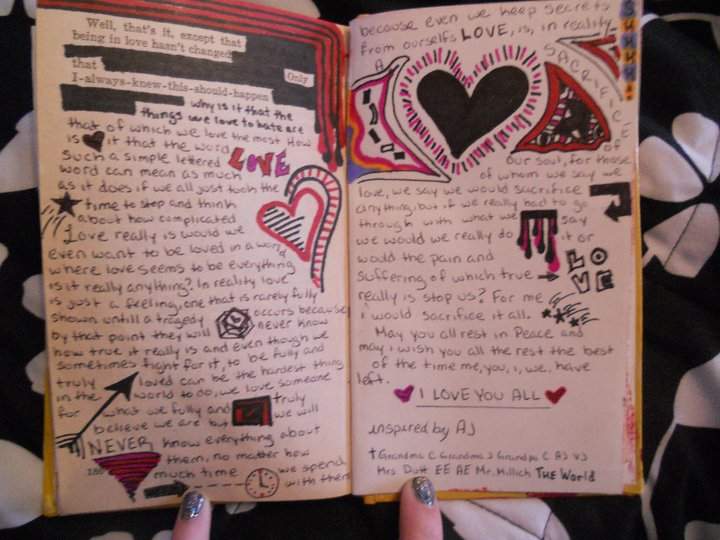 Well, that's it, except that
being in love hasn't changed
that
Only
I-always-knew-this-should-happen
why is it that the
things we love to hate are
that of which we love the most How
is it that the word
such a simple lettered LOVE
word can mean as much
as it does if we all just took the
time to stop and think
about how complicated
Love really is would we
even want to be loved in a word
where love seems to be everything
is it really anything? In reality love
is just a feeling, one that is rarely fully
shown untill a tragedy occurs because
by that point they will never know
how true it really is and even though we
sometimes fight for it, to be fully and
truly loved can be the hardest thing
in the world to do, we love someone
for what we fully and truly
believe we are but we will
NEVER know everything about
them, no matter how
186
much time we spend
with them
because even we keep secrets
from ourselfs LOVE, is, in reality
A
SACRIFICE
of
our soul, for those
of whom we say we
love, we say we would sacrifice
anything, but if we really had to go
through with what we say
we would we really do it or
would the pain and
suffering of which true LOVE
really is stop us? For me
i would sacrifice it all.
May you all rest in Peace and
may i wish you all the rest the best
of the time me, you, i, we, have
left.
I LOVE YOU ALL
inspired by AJ
† Grandma C Grandma J Grandpa C AJ VJ
Mrs Dutt EE AE Mr. Millich THE World